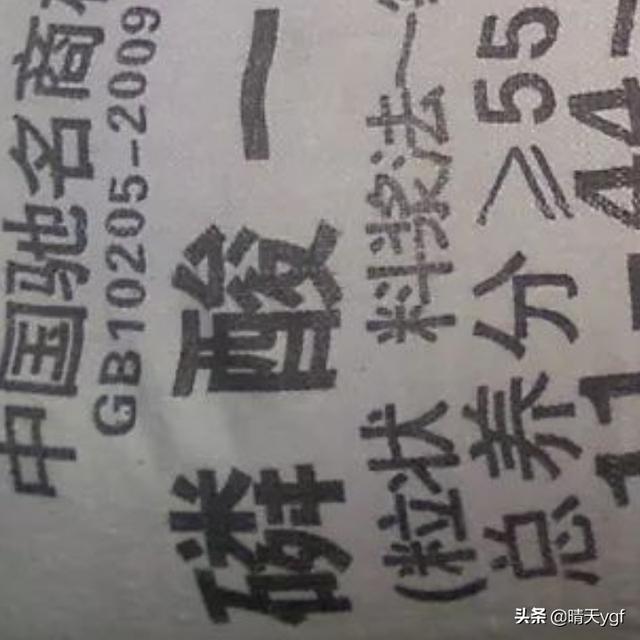 中国驰名商
GB10205-2009
磷酸一
(粒状 料浆法一
总养分≥55
11-44-
头条 @晴天ygf